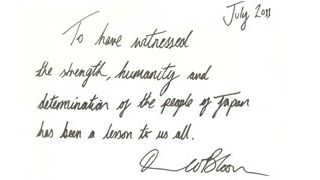 July 2011
To have witnessed
the strength, humanity and
determination of the people of Japan
has been a lesson to us all.